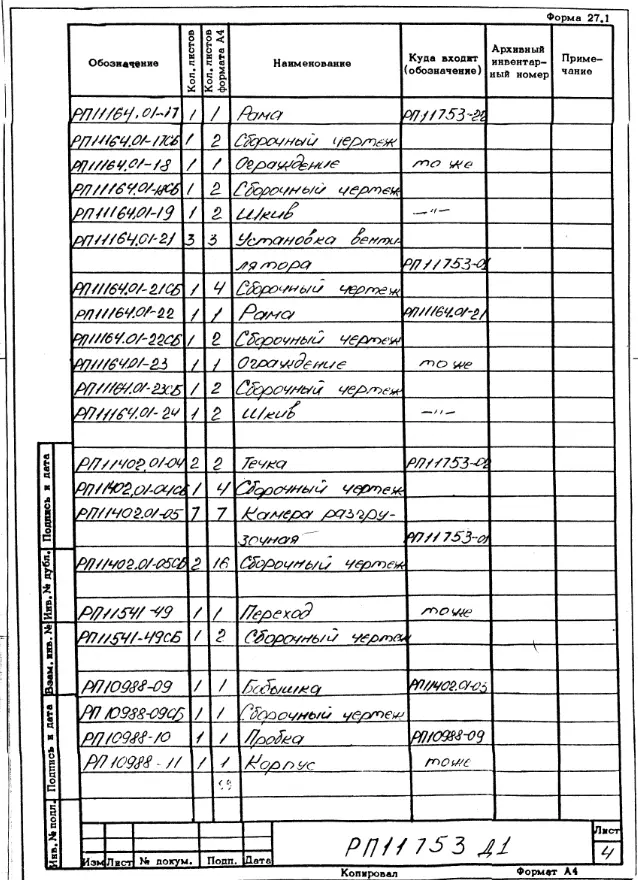 Форма 27.1
Обозначение Кол. листов Кол. листов формата А4 Наименование Куда входит (обозначение) Архивный инвентарный номер Примечание
РП11164.01-17 1 1 Рама РП11753-22
РП11164.01-17СБ 1 2 Сборочный чертеж
РП11164.01-18 1 1 Ограждение то же
РП11164.01-18СБ 1 2 Сборочный чертеж
РП11164.01-19 1 2 Шкив —"—
РП11164.01-21 3 3 Установка венти
лятора РП11753-01
РП11164.01-21СБ 1 4 Сборочный чертеж
РП11164.01-22 1 1 Рама РП11164.01-21
РП11164.01-22СБ 1 2 Сборочный чертеж
РП11164.01-23 1 1 Ограждение то же
РП11164.01-23СБ 1 2 Сборочный чертеж
РП11164.01-24 1 2 Шкив —"—
РП11402.01-04 2 2 Течка РП11753-02
РП11402.01-04СБ 1 4 Сборочный чертеж
РП11402.01-05 7 7 Камера разгру-
зочная РП11753-01
РП11402.01-05СБ 2 16 Сборочный чертеж
РП11541-49 1 1 Переход то же
РП11541-49СБ 1 2 Сборочный чертеж
РП10988-09 1 1 Бобышка РП11402.01-03
РП10988-09СБ 1 1 Сборочный чертеж
РП10988-10 1 1 Пробка РП10988-09
РП10988-11 1 1 Корпус то же
Инв. № подл. Подпись и дата Взам. инв. № Инв. № дубл. Подпись и дата
РП11753 Д1
Лист
4
Изм Лист № докум. Подп. Дата
Копировал Формат А4